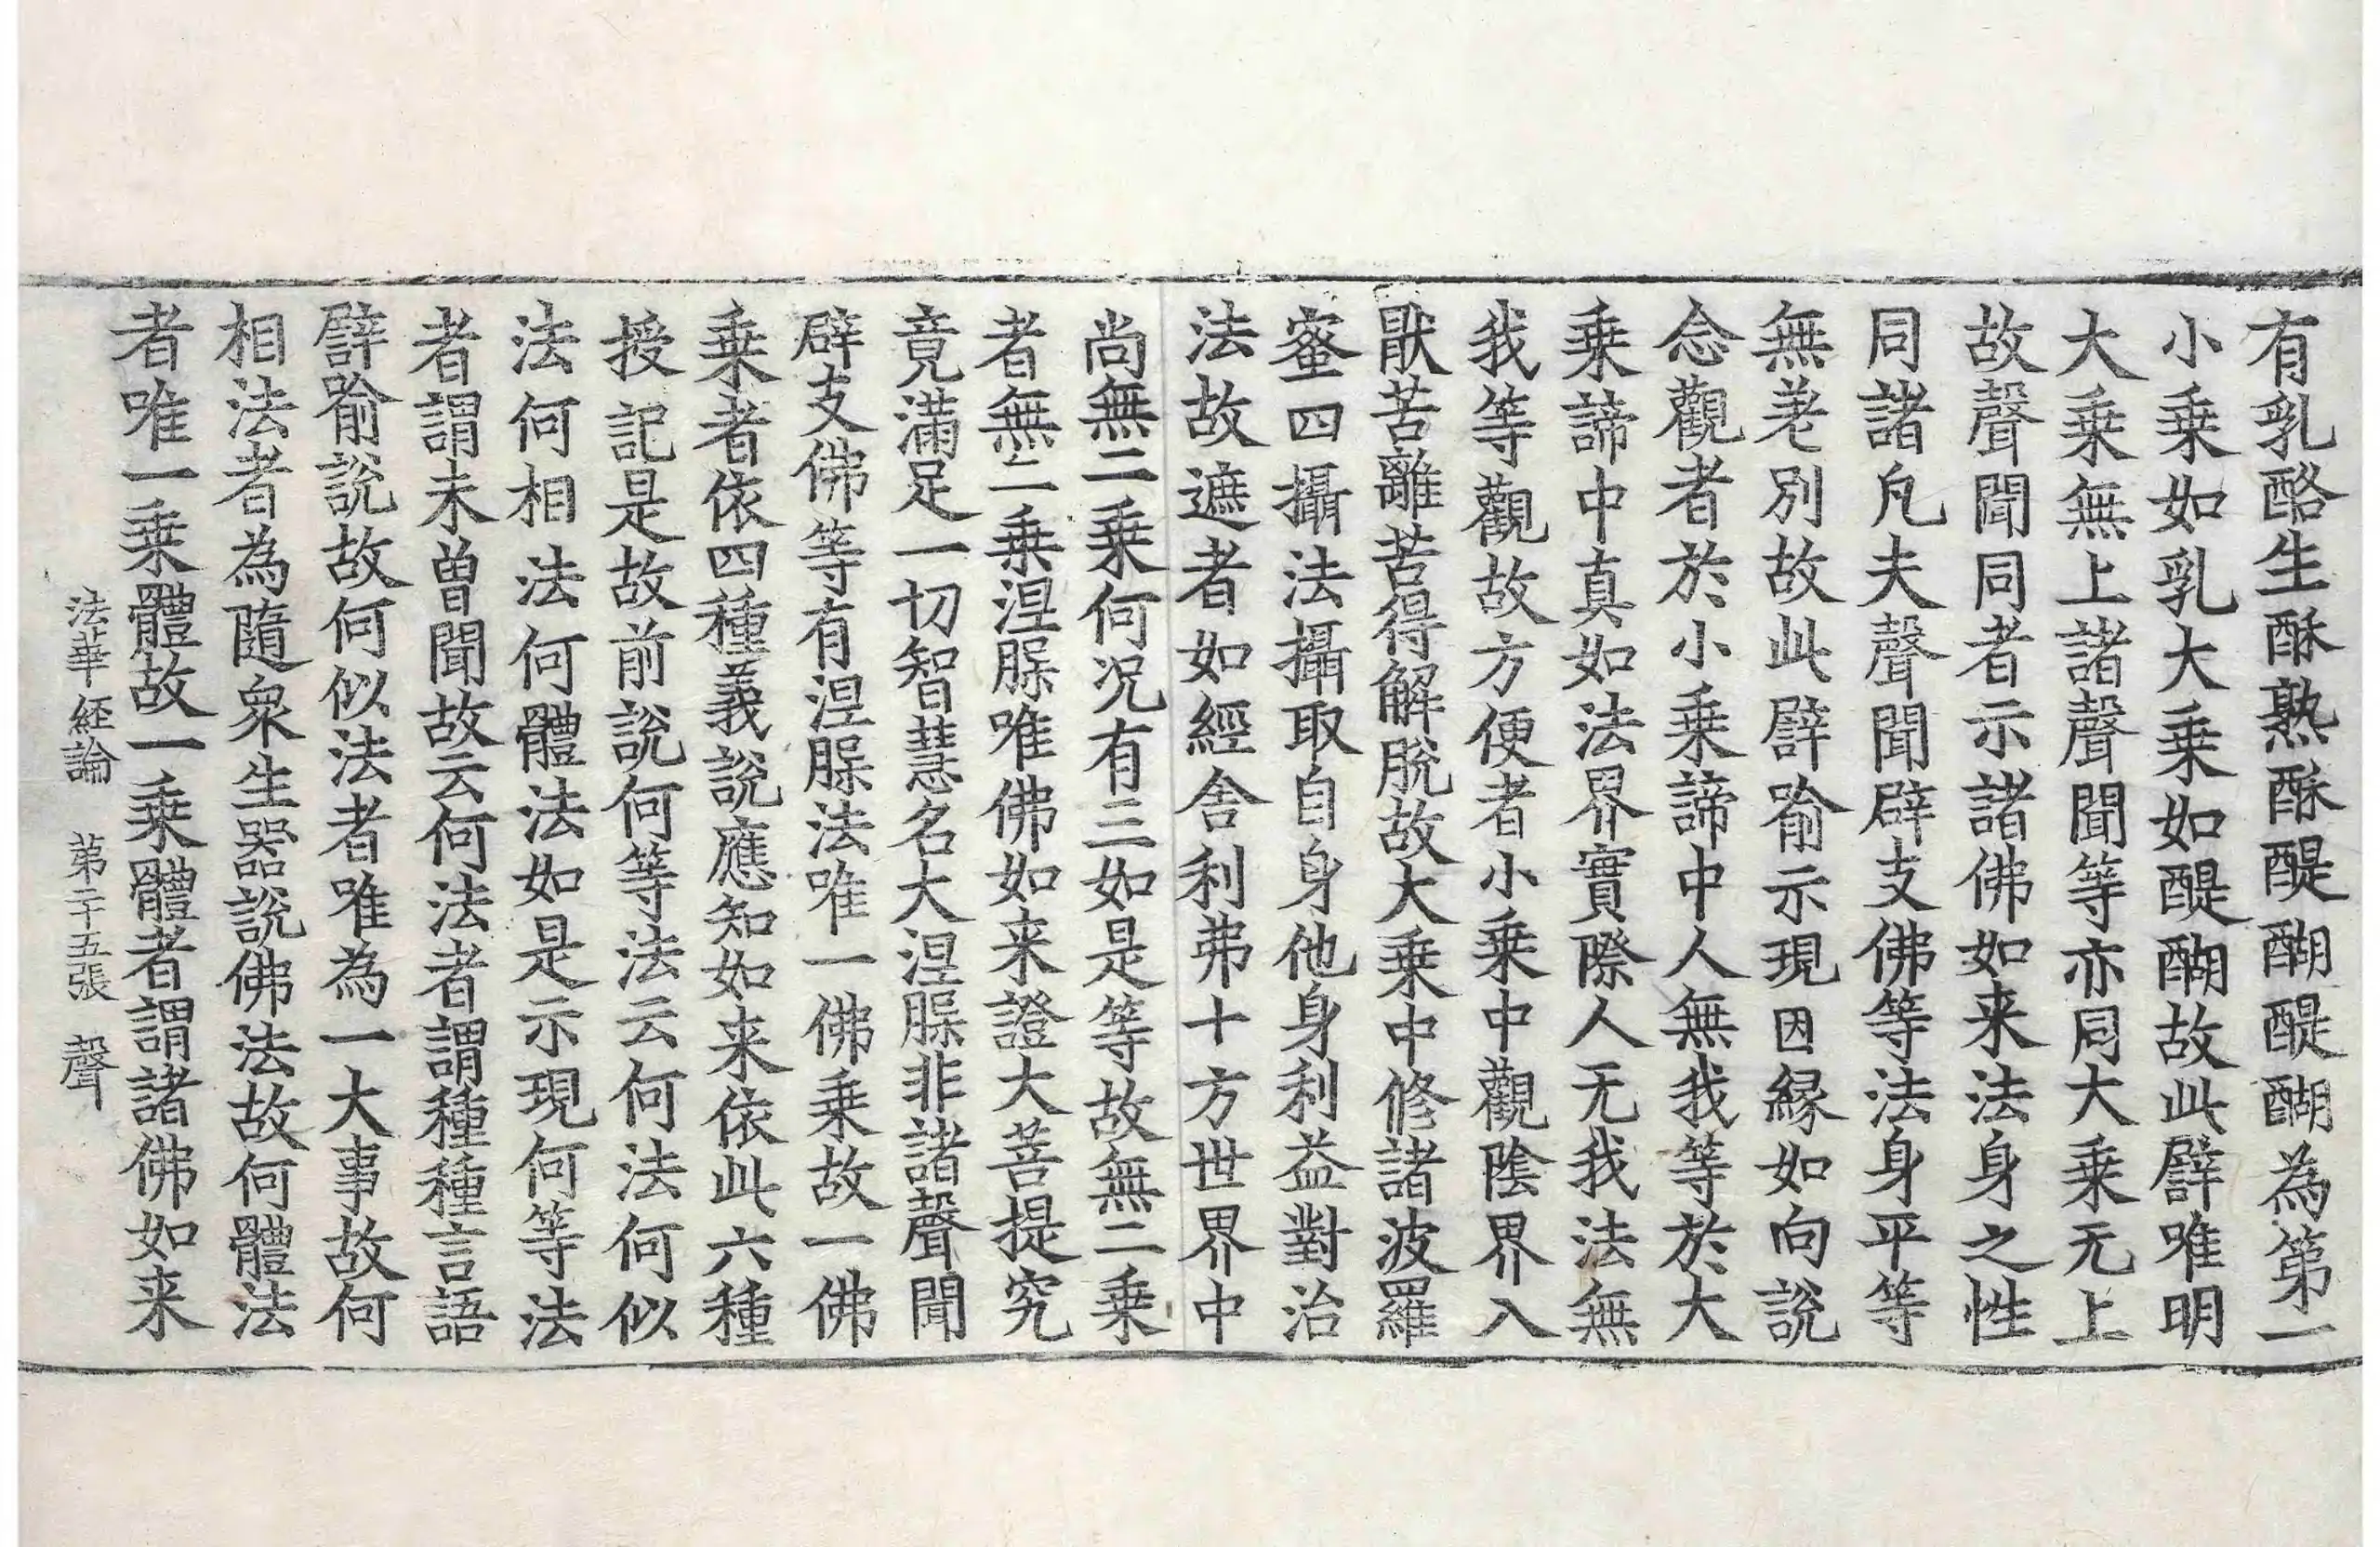 有乳酪生酥熟酥醍醐醍醐為第一
小乗如乳大乗如醍醐故此譬唯明
大乗無上諸聲聞等亦同大乗无上
故聲聞同者示諸佛如来法身之性
同諸凢夫聲聞辟支佛等法身平等
無差別故此譬喻示現因縁如向說
念觀者於小乗諦中人無我等於大
乗諦中真如法界實際人无我法無
我等觀故方便者小乗中觀陰界入
猒苦離苦得解脫故大乗中修諸波羅
蜜四攝法攝取自身他身利益對治
法故遮者如經舎利弗十方世界中
尚無二乗何况有三如是等故無二乗
者無二乗涅槃唯佛如来證大菩提究
竟満足一切智慧名大涅槃非諸聲聞
辟支佛等有涅槃法唯一佛乗故一佛
乗者依四種義說應知如来依此六種
授記是故前說何等法云何法何似
法何相法何體法如是示現何等法
者謂未曽聞故云何法者謂種種言語
譬喻說故何似法者唯為一大事故何
相法者為隨衆生器說佛法故何體法
者唯一乗體故一乗體者謂諸佛如来
法華経論 苐二十五張 聲